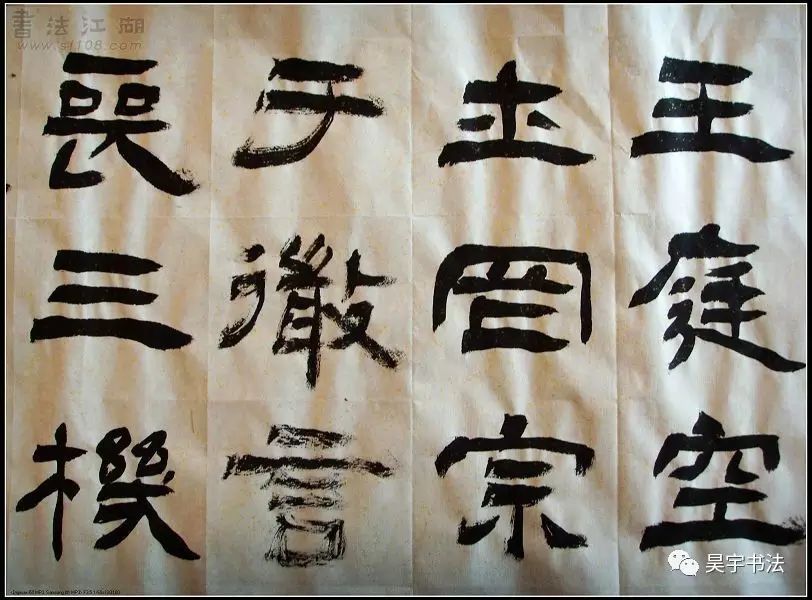 書法江湖
www.sf108.com
王庭空
土罔宗
于言
喪三機
昊宇书法